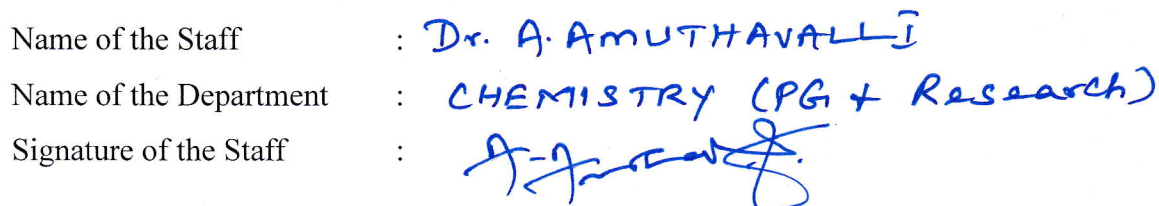 Name of the Staff : Dr. A. AMUTHAVALLI
Name of the Department : CHEMISTRY (PG + Research)
Signature of the Staff : A-